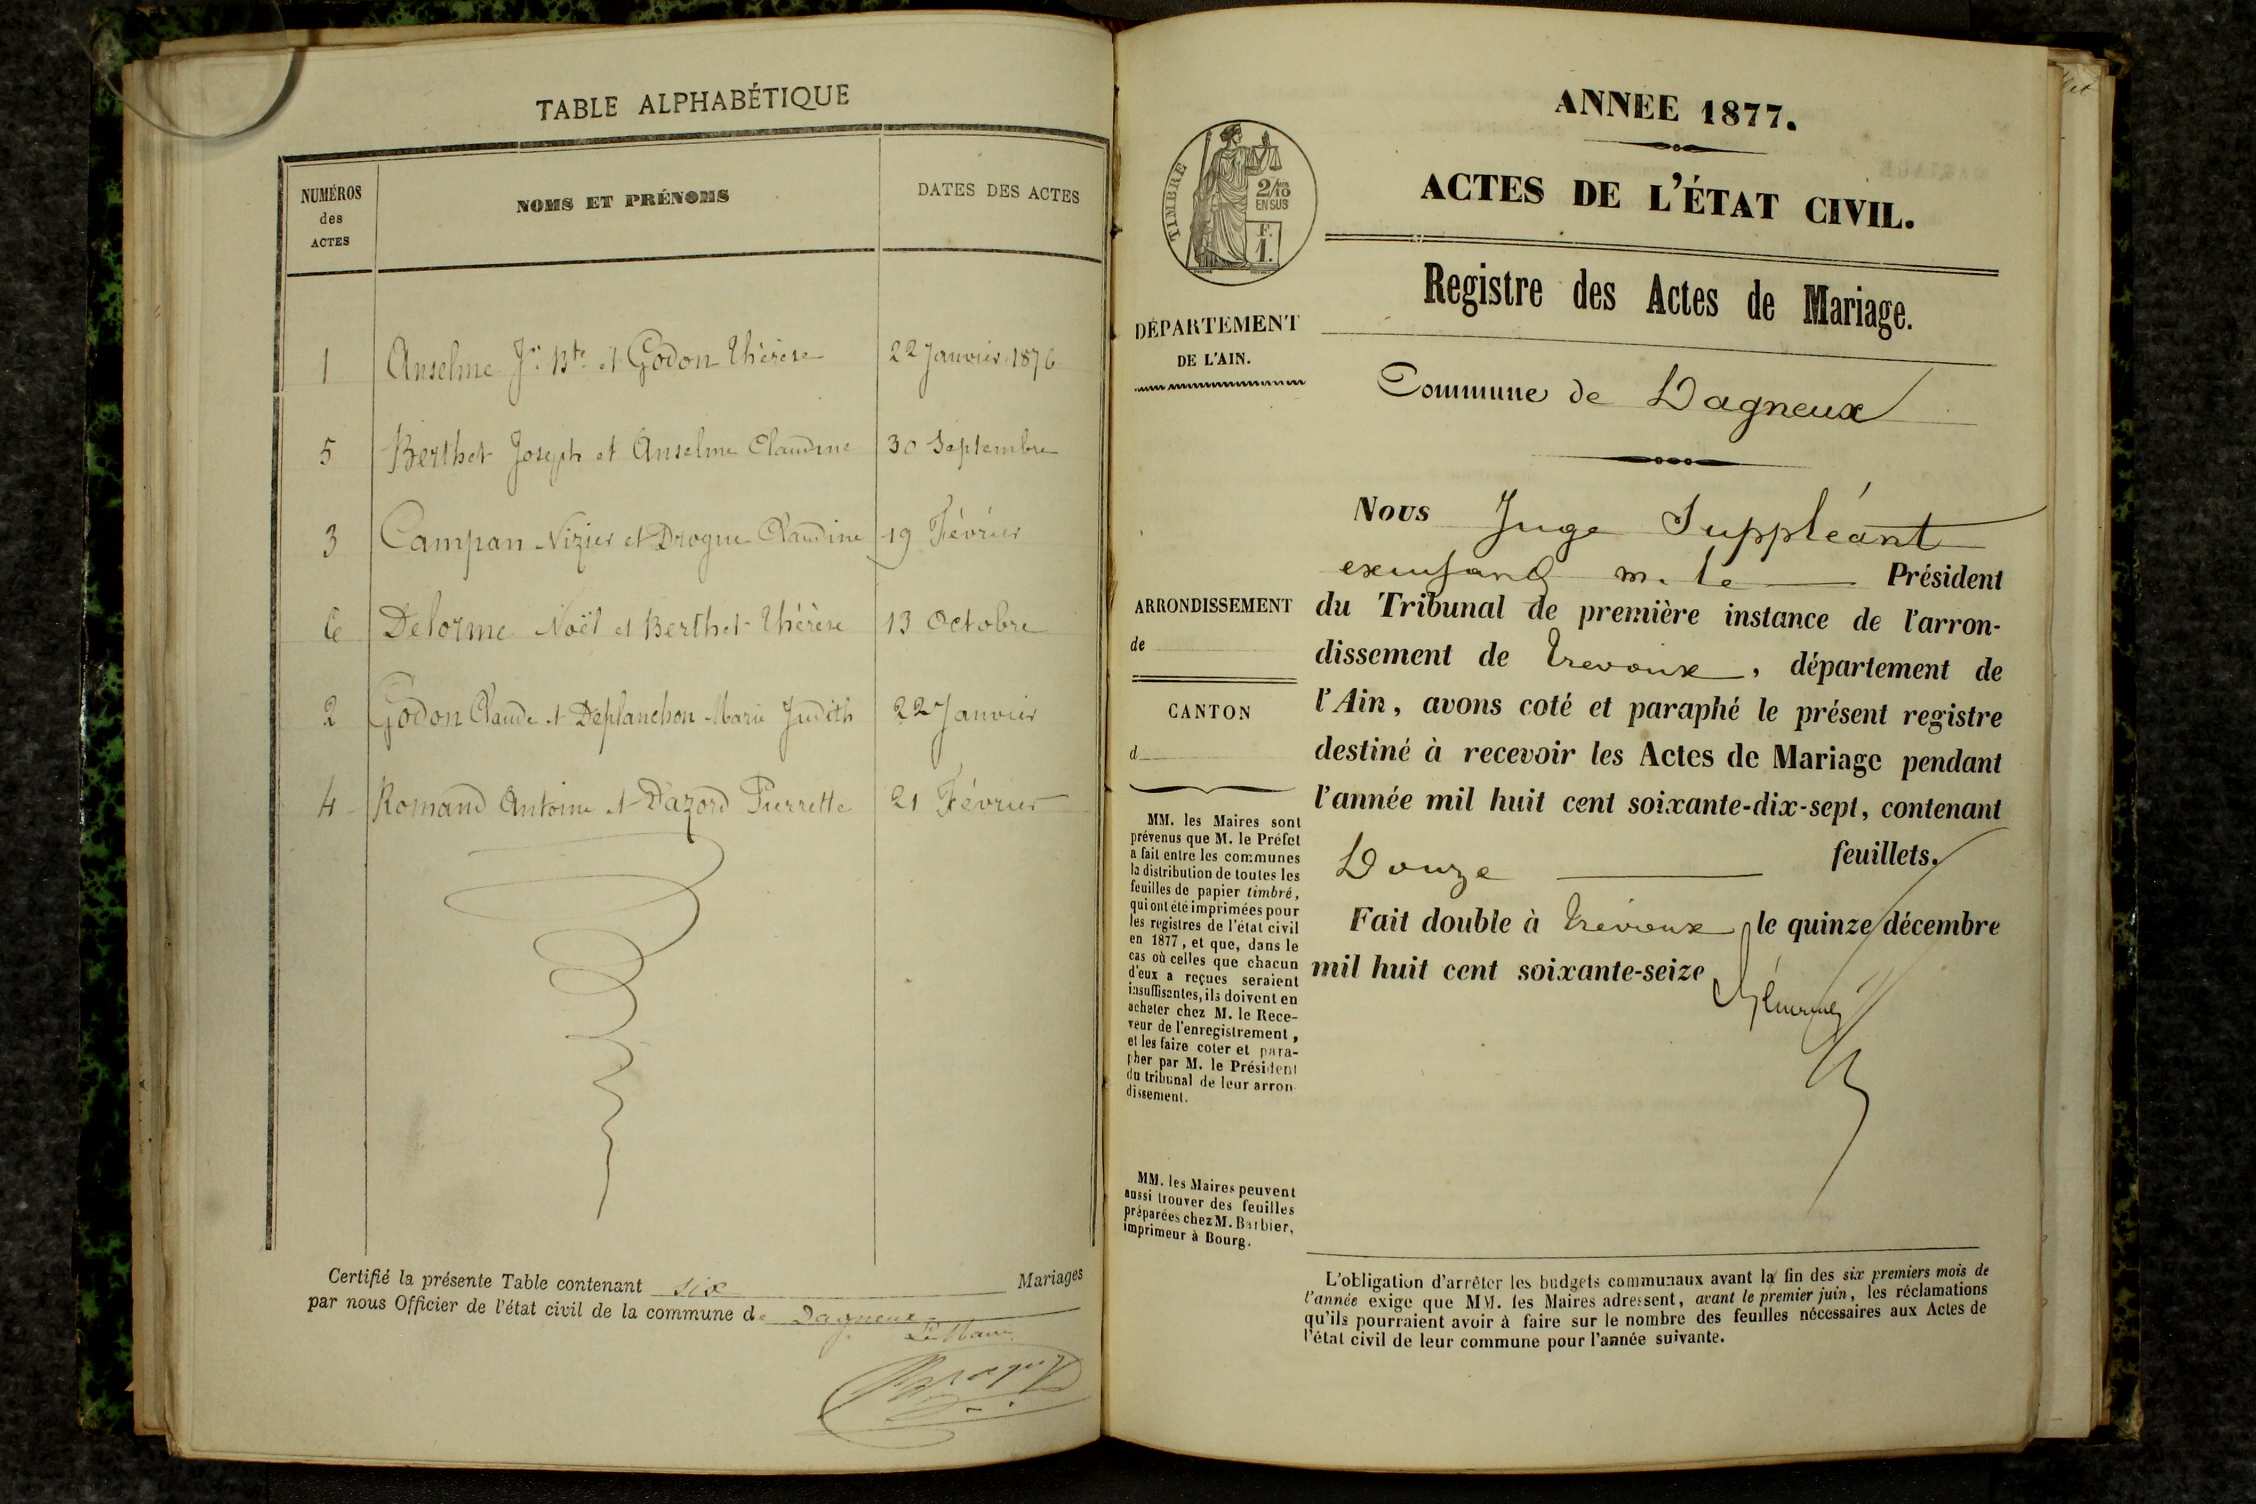 TABLE ALPHABÉTIQUE
NUMÉROS
des
ACTES
NOMS ET PRÉNOMS
DATES DES ACTES
1 Anselme Jn Bte et Godon Thérèse 22 Janvier 1876
5 Berthet Joseph et Anselme Claudine 30 Septembre
3 Campan Nizier et Drogue Claudine 19 Février
6 Delorme Noël et Berthet Thérèse 13 Octobre
2 Godon Claude et Deplanchon Marie Judith 22 Janvier
4 Romand Antoine et Dazord Pierrette 21 Février
Certifié la présente Table contenant six Mariages
par nous Officier de l'état civil de la commune de Dagneux
Le Maire
ANNÉE 1877.
ACTES DE L'ÉTAT CIVIL.
TIMBRE
2/10 EN SUS
F.
1.
Registre des Actes de Mariage.
DÉPARTEMENT
DE L'AIN.
Commune de Dagneux
Nous Juge Suppléant
m. le Président
du Tribunal de première instance de l'arron-
dissement de Trevoux, département de
l'Ain, avons coté et paraphé le présent registre
destiné à recevoir les Actes de Mariage pendant
l'année mil huit cent soixante-dix-sept, contenant
Douze feuillets.
Fait double à Trévoux le quinze décembre
mil huit cent soixante-seize
ARRONDISSEMENT
de
CANTON
d
MM. les Maires sont
prévenus que M. le Préfet
a fait entre les communes
la distribution de toutes les
feuilles de papier timbré,
qui ont été imprimées pour
les registres de l'état civil
en 1877, et que, dans le
cas où celles que chacun
d'eux a reçues seraient
insuffisantes, ils doivent en
acheter chez M. le Rece-
veur de l'enregistrement,
et les faire coter et para-
pher par M. le Président
du tribunal de leur arron
dissement.
MM. les Maires peuvent
aussi trouver des feuilles
préparées chez M. Barbier,
imprimeur à Bourg.
L'obligation d'arrêter les budgets communaux avant la fin des six premiers mois de
l'année exige que MM. les Maires adressent, avant le premier juin, les réclamations
qu'ils pourraient avoir à faire sur le nombre des feuilles nécessaires aux Actes de
l'état civil de leur commune pour l'année suivante.